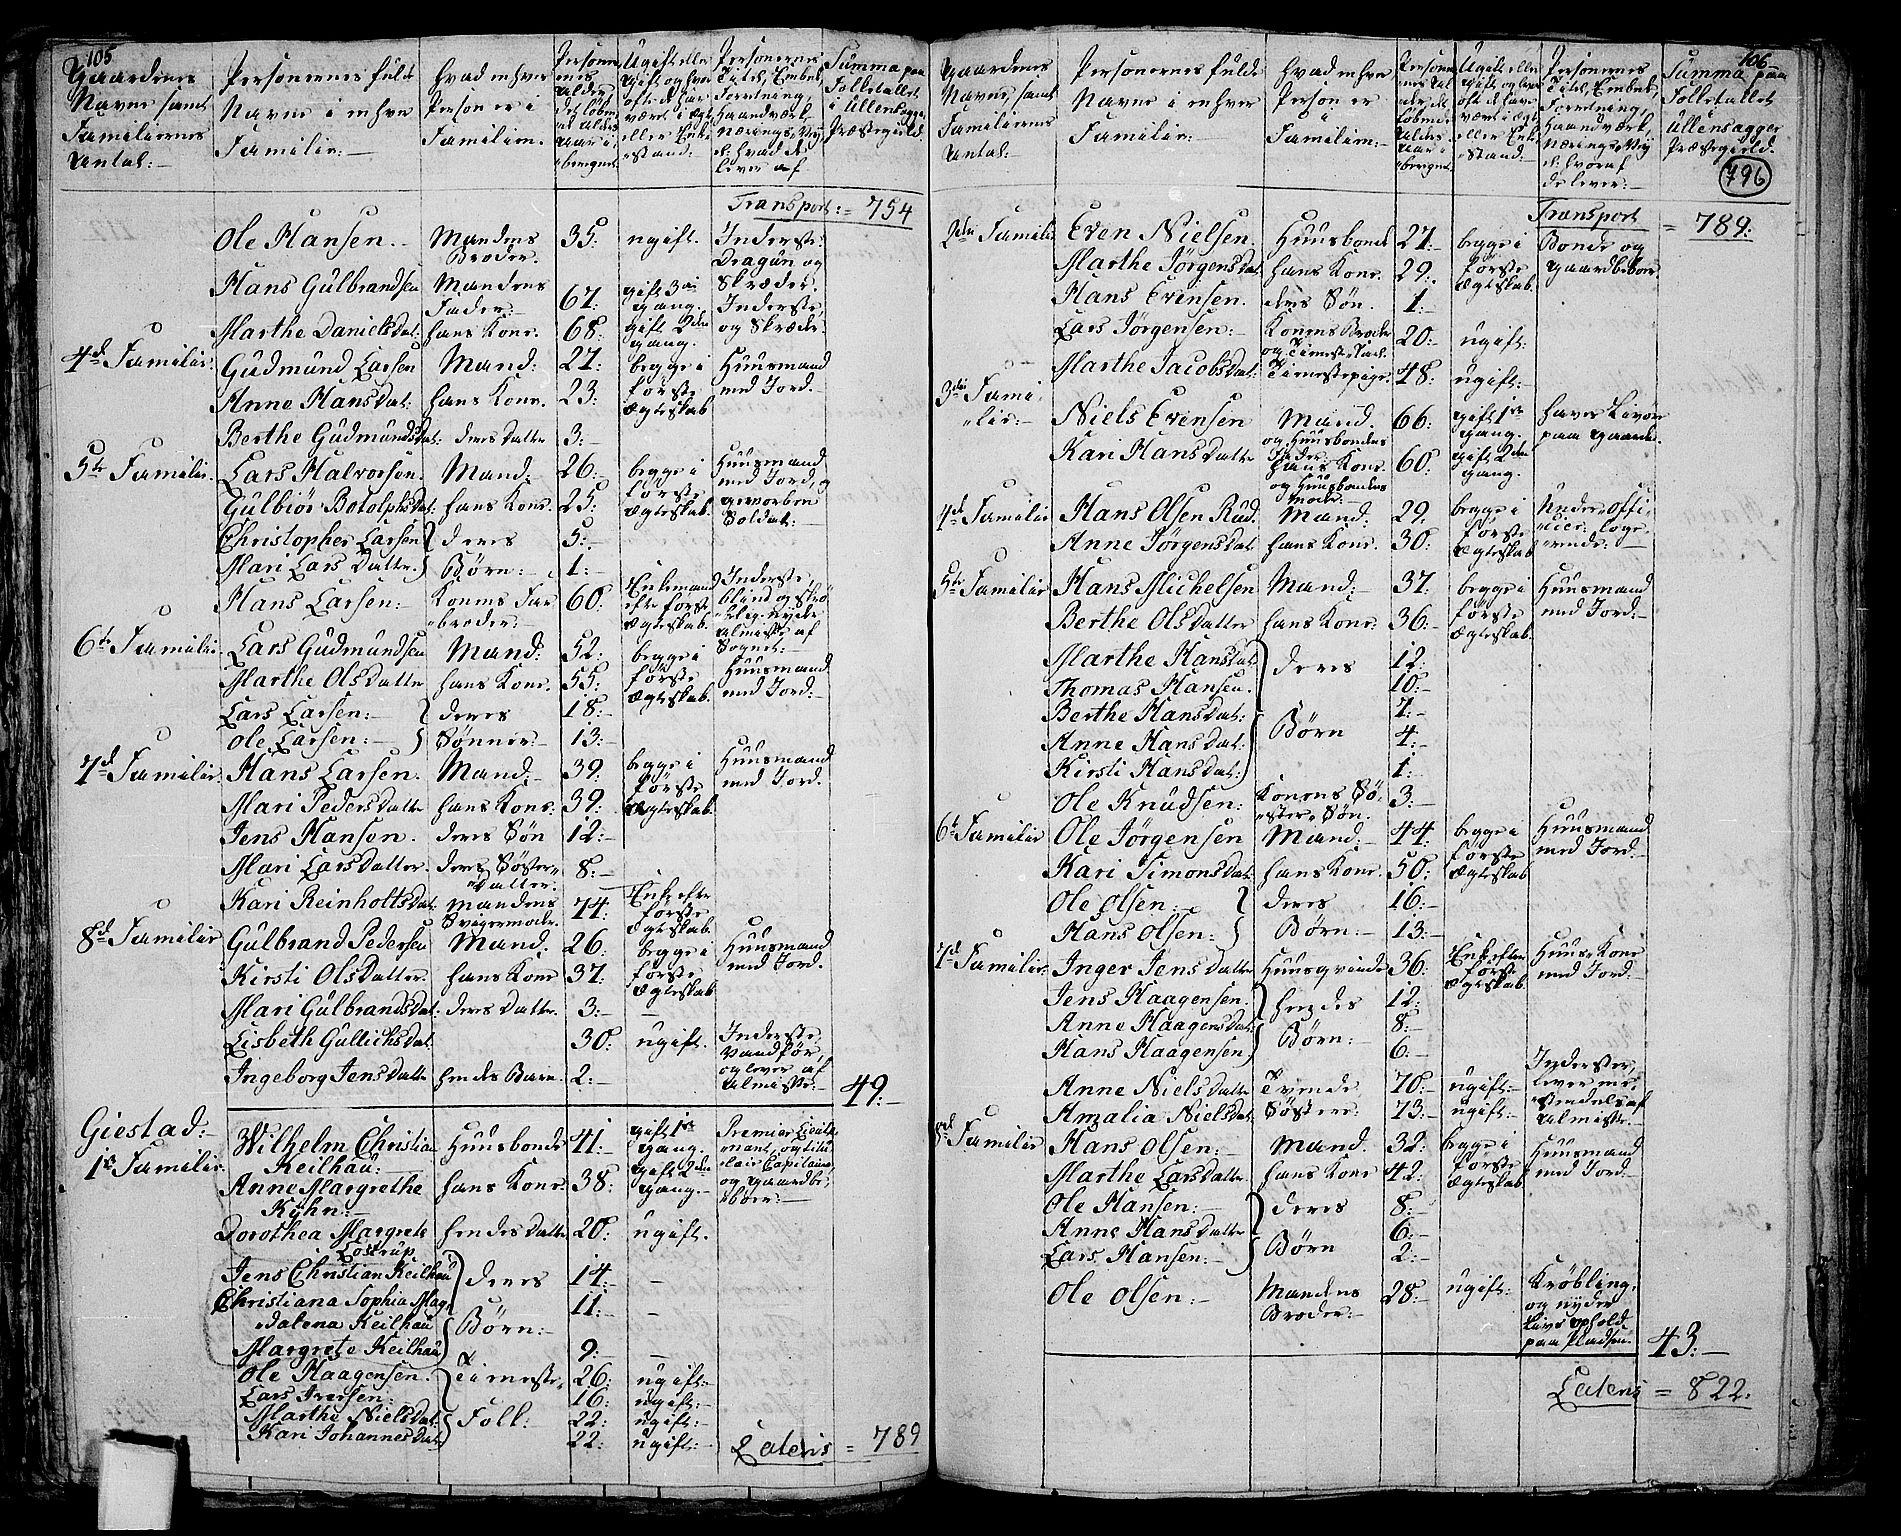 105
Gaardenes Navne samt Familiernes Antal:
Personernes fulde Navne i enhver Familie:
Hvad enhver Person er i Familien.
Personernes Alder, det løbende Alders Aar iberegnet
Ugift eller Gift og hvor ofte de har været i Ægte- eller Enkestand:
Personernes Titel, Embede, Forretning, Haandværk, Næringsvey, el: hvad de lever af
Summa paa Folketallet i Ullensager Præstegield.
Transport: = 754
Ole Hansen. Mandens Broder. 35: ugift. Inderste Dragun og Skræder.
Hans Gulbrandsen Mandens Fader: 67: gift 3die gang. Inderste, og Skræder
Marthe Danielsdat: hans Kone. 68: gift 2den gang.
4de Familie. Gudmund Larsen Mand: 27: begge i første Ægteskab Huusmand med Jord.
Anne Hansdat: hans Kone. 23:
Berthe Gudmundsdat: deres datter 3:
5te Familie. Lars Halvorsen. Mand: 26: begge i første Ægteskab. Huusmand med Jord, og gevorben Soldat:
Gulbiør Botolphsdat: hans Kone. 25:
Christopher Larsen } deres 5:
Mari Lars Datter. } Børn: 1:
Hans Larsen: Konens Farbroder: 60: Enkemand efter første Ægteskab. Inderste, blind og nyder Almisse af Sognet:
6te Familie. Lars Gudmundsen Mand: 52: begge i første Ægteskab. Huusmand med Jord:
Marthe Olsdatter hans Kone. 55:
Lars Larsen: } deres 18:
Ole Larsen: } Sønner 13:
7de Familie. Hans Larsen. Mand: 39: begge i første Ægteskab. Huusmand med Jord.
Mari Pedersdatter hans Kone: 39:
Jens Hansen. deres Søn 12:
Mari Larsdatter. deres Søsterdatter. 8:
Kari Reinholtsdat: Mandens Svigermoder. 74: Enke efter første Ægteskab.
8de Familie Gulbrand Pedersen Mand: 26: begge i første Ægteskab Huusmand med Jord.
Kirsti Olsdatter. hans Kone 37:
Mari Gulbrandsdat: deres datter. 3:
Lisbeth Gullichsdat: 30: ugift. Inderste, vandfør, og lever af Almisse:
Ingeborg Jensdatter hendes Barn. 2: 49:
Giestad:
1te Familie. Wilhelm Christian Keilhau: Huusbonde 41: gift 1te gang. Premier Lieutenant, og titulair Capitain, og gaardbeboer:
Anne Margrethe Kyhn: hans Kone. 38: gift 2den gang.
Dorothea Margrete Lostrup hendes datter 20: ugift.
Jens Christian Keilhau } deres 14:
Christiana Sophia Magdalena Keilhau } 11:
Margrete Keilhau } Børn: 9:
Ole Haagensen. } Tieneste- 26: ugift:
Lars Iversen: 16: ugift:
Marthe Nielsdat: } Folk: 22: ugift:
Kari Johannesdat: 22: ugift:
Lateris = 789
106
796
Gaardenes Navne, samt Familiernes Antal:
Personernes fulde Navne i enhver Familie:
Hvad enhver Person er i Familien:
Personernes Alder, det løbende Alders Aar iberegnet
Ugift eller gift og hvor ofte de have været i Ægte- eller Enkestand:
Personernes Titel, Embede, Forretning, Haandværk, Næringsvey el: hvoraf de lever:
Summa paa Folketallet Ullensager Præstegield.
Transport = 789:
2den Familie Even Nielsen. Huusbonde 27: begge i første Ægteskab. Bonde og gaardbeboer.
Marthe Jørgensdat: hans Kone. 29:
Hans Evensen. deres Søn. 1:
Lars Jørgensen: Konens Broder og Tieneste Karl. 20: ugift:
Marthe Jacobsdat: Tienestepige. 48: ugift:
3die Familie: Niels Evensen Mand. og Huusbondens Fader. 66: gift 1te gang. haver Livøre paa gaarden.
Kari Hansdatter hans Kone. og Huusbondens Moder: 60: gift 2den gang.
4de Familie Hans Olsen Rud. Mand: 29. begge i første Ægteskab Under Officier, logerende:
Anne Jørgensdat: hans Kone. 30:
5te Familie Hans Michelsen Mand: 37: begge i første Ægteskab. Huusmand med Jord:
Berthe Olsdatter hans Kone: 36:
Marthe Hansdat: } deres 12:
Thomas Hansen. 10:
Berthe Hansdat: 7:
Anne Hansdat: } Børn 4:
Kirsti Hansdat: 1:
Ole Knudsen: Konens Søsters Søn. 3:
6te Familie Ole Jørgensen Mand: 44: begge i første Ægteskab Huusmand med Jord:
Kari Simonsdat: hans Kone. 50:
Ole Olsen: } deres 16:
Hans Olsen: } Børn: 13:
7de Familie. Inger Jensdatter Huusqvinde 36: Enke efter første Ægteskab Huus Kone med Jord:
Jens Haagensen. } hendes 12:
Anne Haagensdat: 8:
Hans Haagensen } Børn: 6:
Anne Nielsdatter Tvende 70: ugift: Inderster, lever meestendels af Almisse:
Amalia Nielsdat: Søstre: 73: ugift:
8de Familie Hans Olsen: Mand. 32: begge i første Ægteskab Huusmand med Jord:
Marthe Larsdatter hans Kone 42:
Ole Hansen: } deres 8:
Anne Hansdatter 6:
Lars Hansen: } Børn 2:
Ole Olsen: Mandens Broder: 28: ugift: Krøbling, og nyder Livs ophold paa Pladsen. 43:
Lateris = 822: